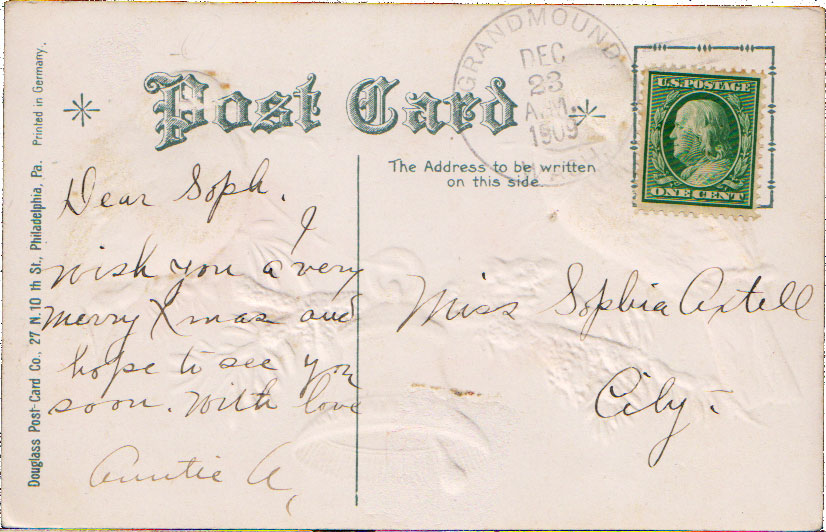 GRANDMOUND
DEC
23
A.M.
1909
U.S. POSTAGE
ONE CENT
Post Card
The Address to be written
on this side.
Dear Soph.
I
wish you a very
merry Xmas and
hope to see you
soon. With love
Auntie A.
Miss Sophia Axtell
City.
Douglass Post-Card Co., 27 N. 10 th St., Philadelphia, Pa. Printed in Germany.